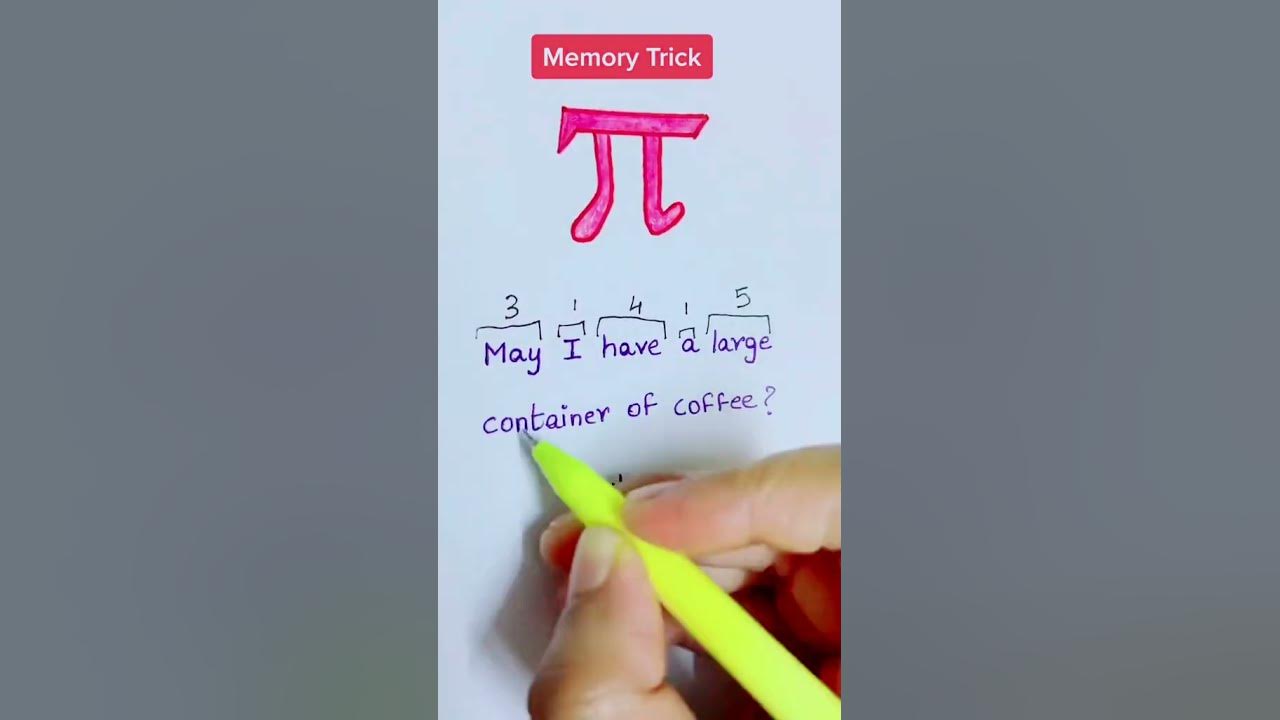 Memory Trick
π
3 1 4 1 5
May I have a large
container of coffee?